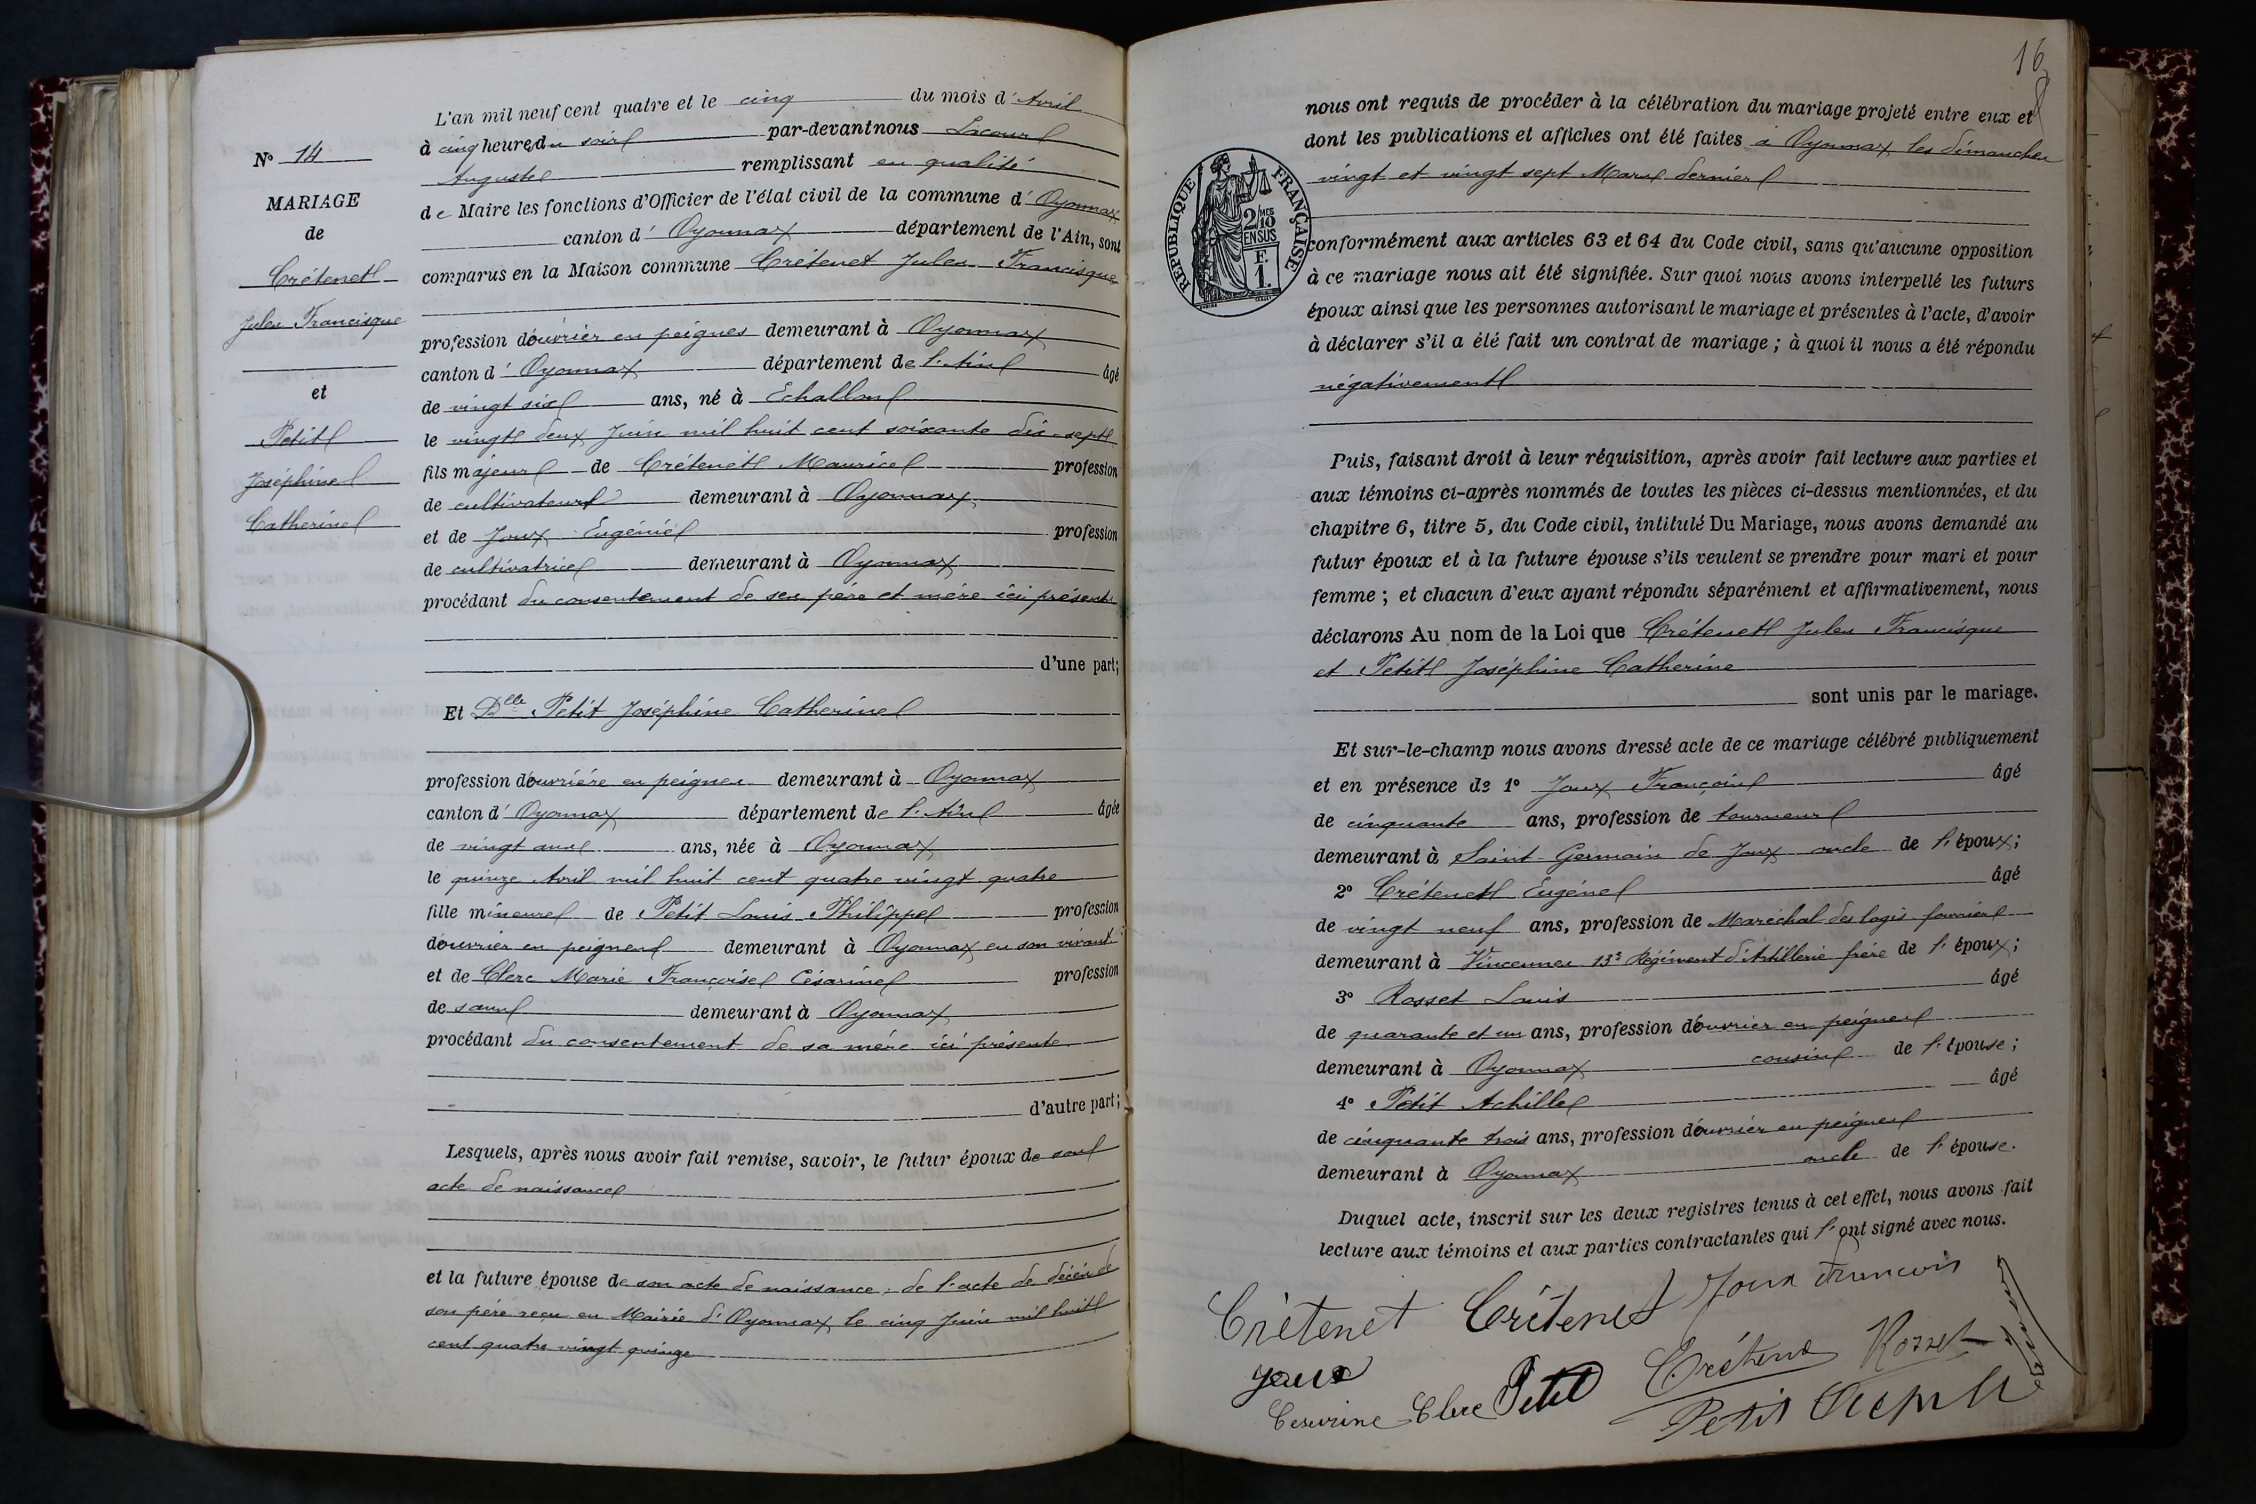 N° 14
MARIAGE
de
Crétenet
Jules Francisque
et
Petit
Joséphine
Catherine
L'an mil neuf cent quatre et le cinq du mois d'Avril
à cinq heures du soir par-devant nous Lacour
Auguste remplissant en qualité
de Maire les fonctions d'Officier de l'état civil de la commune d'Oyonnax
canton d'Oyonnax département de l'Ain, sont
comparus en la Maison commune Crétenet Jules Francisque
profession d'ouvrier en peignes demeurant à Oyonnax
canton d'Oyonnax département de l'Ain âgé
de vingt six ans, né à Echallon
le vingt deux Juin mil huit cent soixante dix-sept
fils majeur de Crétenet Maurice profession
de cultivateur demeurant à Oyonnax
et de Joux Eugénie profession
de cultivatrice demeurant à Oyonnax
procédant du consentement de ses père et mère ici présents
d'une part;
Et Dlle Petit Joséphine Catherine
profession d'ouvrière en peignes demeurant à Oyonnax
canton d'Oyonnax département de l'Ain âgée
de vingt ans ans, née à Oyonnax
le quinze Avril mil huit cent quatre vingt quatre
fille mineure de Petit Louis Philippe profession
d'ouvrier en peignes demeurant à Oyonnax en son vivant
et de Clerc Marie Françoise Césarine profession
de sans demeurant à Oyonnax
procédant du consentement de sa mère ici présente
d'autre part;
Lesquels, après nous avoir fait remise, savoir, le futur époux de son
acte de naissance
et la future épouse de son acte de naissance, de l'acte de décès de
son père reçu en Mairie d'Oyonnax le cinq Juin mil huit
cent quatre vingt quinze
16
nous ont requis de procéder à la célébration du mariage projeté entre eux et
dont les publications et affiches ont été faites à Oyonnax les dimanches
vingt et vingt sept Mars dernier
RÉPUBLIQUE FRANÇAISE
2/10 MES
EN SUS
F.
1.
conformément aux articles 63 et 64 du Code civil, sans qu'aucune opposition
à ce mariage nous ait été signifiée. Sur quoi nous avons interpellé les futurs
époux ainsi que les personnes autorisant le mariage et présentes à l'acte, d'avoir
à déclarer s'il a été fait un contrat de mariage ; à quoi il nous a été répondu
négativement
Puis, faisant droit à leur réquisition, après avoir fait lecture aux parties et
aux témoins ci-après nommés de toutes les pièces ci-dessus mentionnées, et du
chapitre 6, titre 5, du Code civil, intitulé Du Mariage, nous avons demandé au
futur époux et à la future épouse s'ils veulent se prendre pour mari et pour
femme ; et chacun d'eux ayant répondu séparément et affirmativement, nous
déclarons Au nom de la Loi que Crétenet Jules Francisque
et Petit Joséphine Catherine
sont unis par le mariage.
Et sur-le-champ nous avons dressé acte de ce mariage célébré publiquement
et en présence de 1° Joux François âgé
de cinquante ans, profession de tourneur
demeurant à Saint Germain de Joux oncle de l'époux;
2° Crétenet Eugène âgé
de vingt neuf ans, profession de Maréchal des logis fourrier
demeurant à Vincennes 13e Régiment d'Artillerie frère de l'époux;
3° Rosset Louis âgé
de quarante et un ans, profession d'ouvrier en peignes
demeurant à Oyonnax cousin de l'épouse;
4° Petit Achille âgé
de cinquante trois ans, profession d'ouvrier en peignes
demeurant à Oyonnax oncle de l'épouse.
Duquel acte, inscrit sur les deux registres tenus à cet effet, nous avons fait
lecture aux témoins et aux parties contractantes qui l'ont signé avec nous.
Crétenet Crétenet Joux Francois
Joux Crétenet Rosset
Cesarine Clerc Petit Petit Achille